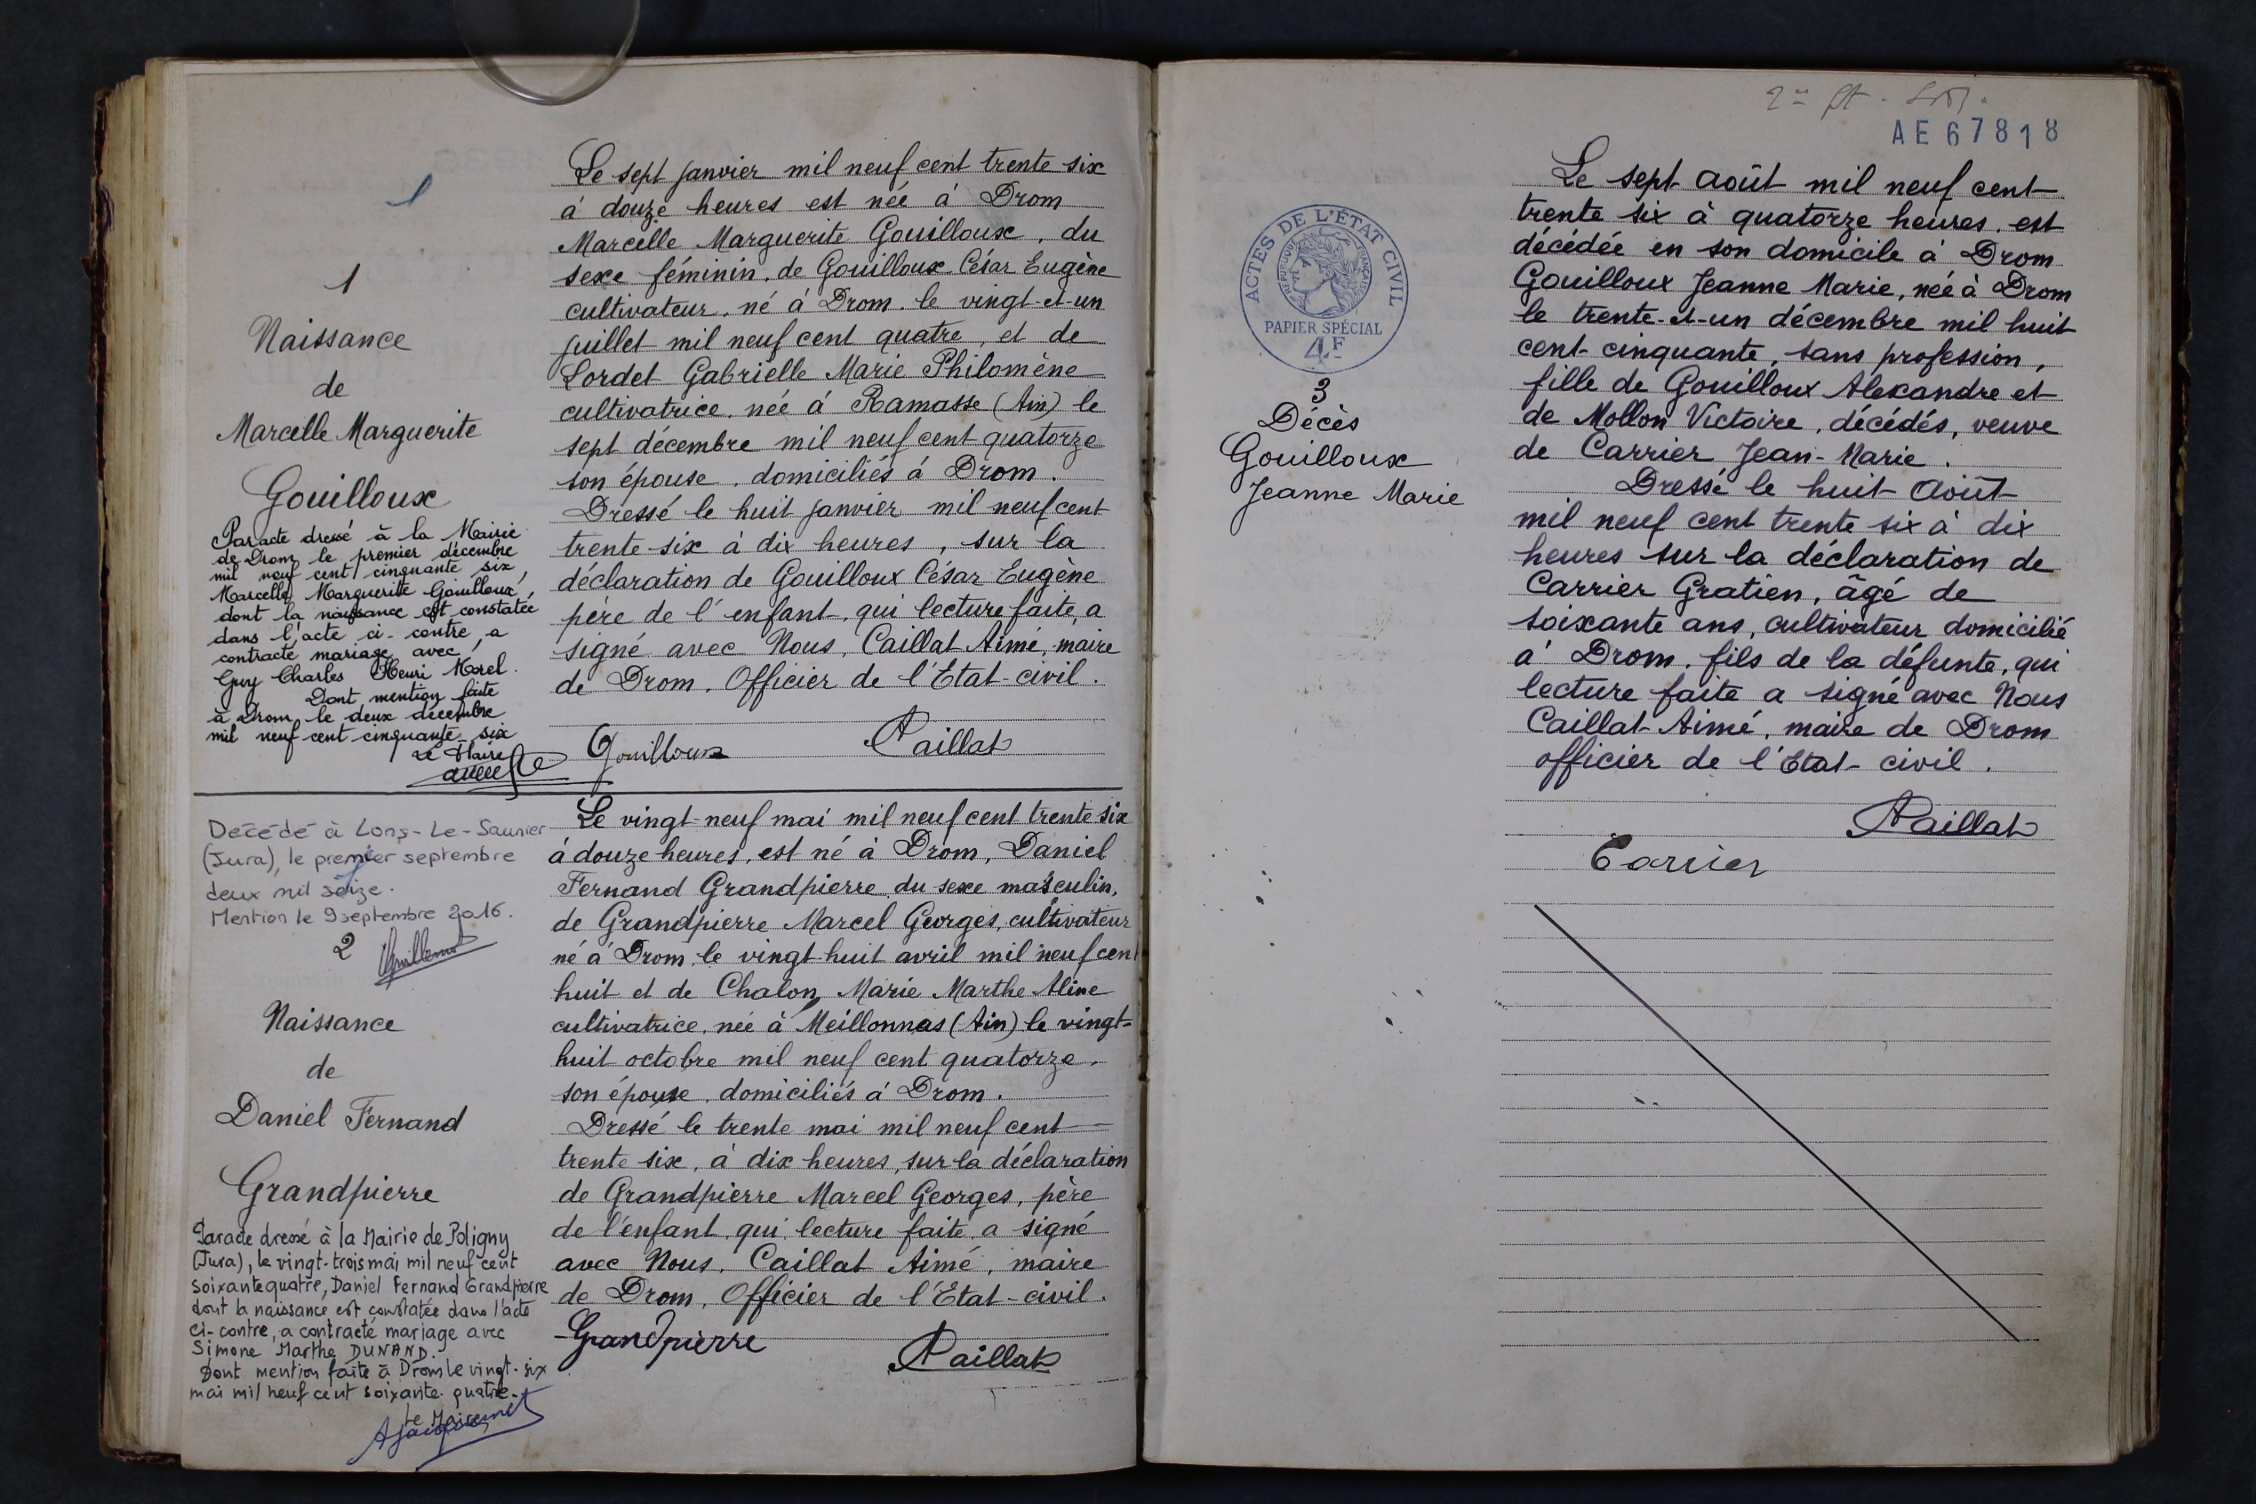 1
Naissance
de
Marcelle Marguerite
Gouilloux
Par acte dressé à la Mairie
de Drom le premier décembre
mil neuf cent cinquante six,
Marcelle Marguerite Gouilloux,
dont la naissance est constatée
dans l'acte ci-contre, a
contracté mariage avec
Guy Charles Henri Morel.
Dont mention faite
à Drom le deux décembre
mil neuf cent cinquante-six
Le Maire
Le sept janvier mil neuf cent trente six
à douze heures est née à Drom
Marcelle Marguerite Gouilloux, du
sexe féminin, de Gouilloux César Eugène
cultivateur, né à Drom, le vingt-et-un
juillet mil neuf cent quatre, et de
Lordet Gabrielle Marie Philomène
cultivatrice, née à Ramasse (Ain) le
sept décembre mil neuf cent quatorze
son épouse, domiciliés à Drom.
Dressé le huit janvier mil neuf cent
trente-six à dix heures, sur la
déclaration de Gouilloux César Eugène
père de l'enfant, qui lecture faite, a
signé avec Nous, Caillat Aimé, maire
de Drom, Officier de l'Etat-civil.
Gouilloux
ACaillat
Décédé à Lons-Le-Saunier
(Jura), le premier septembre
deux mil seize.
Mention le 9 septembre 2016.
2
Naissance
de
Daniel Fernand
Grandpierre
Par acte dressé à la Mairie de Poligny
(Jura), le vingt-trois mai mil neuf cent
soixante quatre, Daniel Fernand Grandpierre
dont la naissance est constatée dans l'acte
ci-contre, a contracté mariage avec
Simone Marthe DUNAND.
Dont mention faite à Drom le vingt-six
mai mil neuf cent soixante-quatre.
Le Maire
Le vingt-neuf mai mil neuf cent trente six
à douze heures, est né à Drom, Daniel
Fernand Grandpierre, du sexe masculin,
de Grandpierre Marcel Georges, cultivateur
né à Drom, le vingt-huit avril mil neuf cent
huit et de Chalon, Marie Marthe Aline
cultivatrice, née à Meillonnas (Ain) le vingt-
huit octobre mil neuf cent quatorze,
son épouse, domiciliés à Drom.
Dressé le trente mai mil neuf cent
trente six, à dix heures, sur la déclaration
de Grandpierre Marcel Georges, père
de l'enfant, qui, lecture faite, a signé
avec Nous, Caillat Aimé, maire
de Drom, Officier de l'Etat-civil.
Grandpierre
ACaillat
AE67818
ACTES DE L'ÉTAT CIVIL
RÉPUBLIQUE FRANÇAISE
PAPIER SPÉCIAL
4F
3
Décès
Gouilloux
Jeanne Marie
Le sept août mil neuf cent
trente six à quatorze heures, est
décédée en son domicile à Drom
Gouilloux Jeanne Marie, née à Drom
le trente-et-un décembre mil huit
cent cinquante, sans profession,
fille de Gouilloux Alexandre et
de Mollon Victoire, décédés, veuve
de Carrier Jean-Marie.
Dressé le huit Août
mil neuf cent trente six à dix
heures sur la déclaration de
Carrier Gratien, âgé de
soixante ans, cultivateur domicilié
à Drom, fils de la défunte, qui
lecture faite a signé avec Nous
Caillat Aimé, maire de Drom
officier de l'Etat-civil.
ACaillat
Carrier